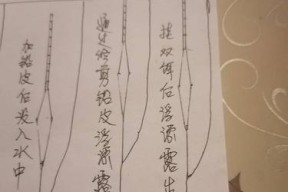 加铅皮后没入水中
通过修剪铅皮浮漂露
挂双饵后浮漂露出